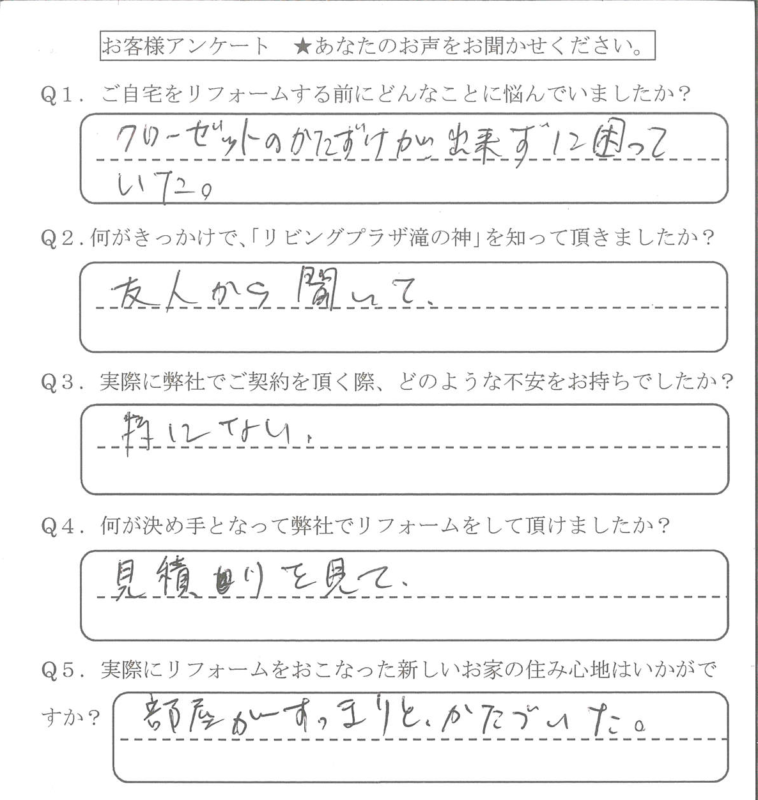 お客様アンケート　★あなたのお声をお聞かせください。
Q1．ご自宅をリフォームする前にどんなことに悩んでいましたか？
クローゼットのかたずけが出来ずに困って
いた。
Q2．何がきっかけで、「リビングプラザ滝の神」を知って頂きましたか？
友人から聞いて、
Q3．実際に弊社でご契約を頂く際、どのような不安をお持ちでしたか？
特にない、
Q4．何が決め手となって弊社でリフォームをして頂けましたか？
見積りを見て、
Q5．実際にリフォームをおこなった新しいお家の住み心地はいかがで
すか？
部屋がすっきりと、かたづいた。